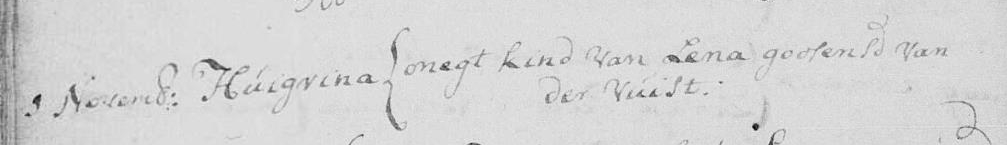 1 Novemb: Húigrina { onegt kind van Lena goosensd van
der Vúist.